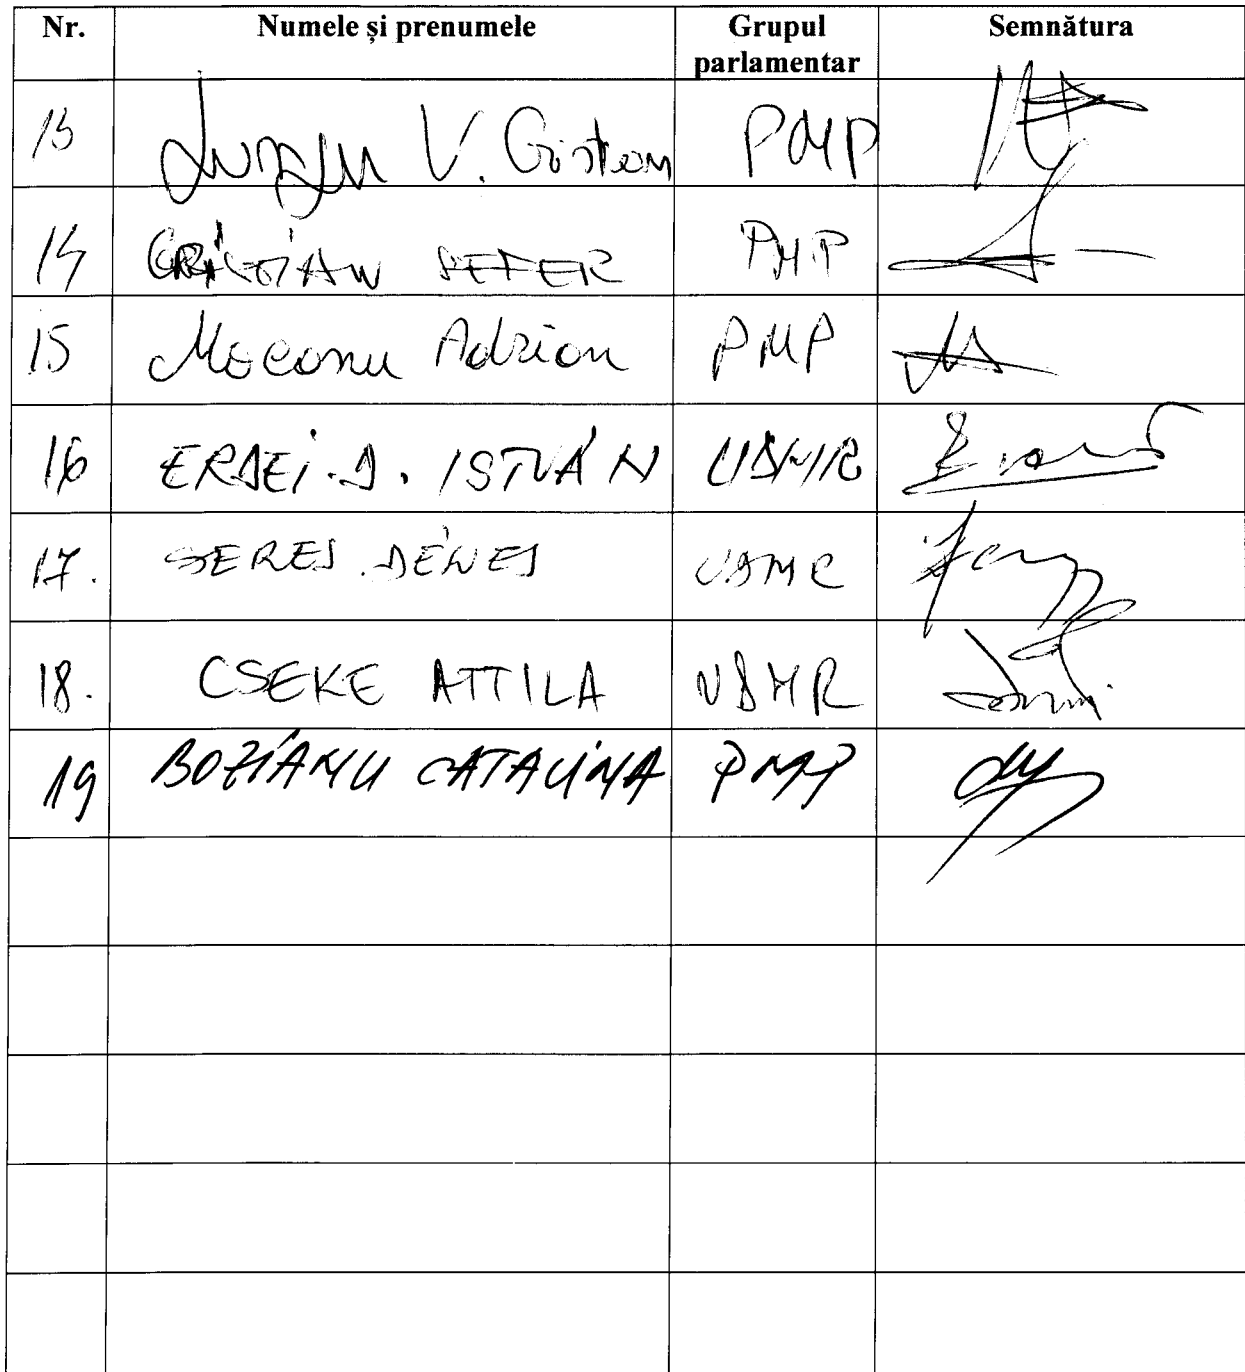 Nr. Numele și prenumele Grupul parlamentar Semnătura
13 Lungu V. Cristian PMP
14 CRISTIAN SEFER PMP
15 Mocanu Adrian PMP
16 ERDEI.D. ISTVÁN UDMR
17. SERES DÉNES UDMR
18. CSEKE ATTILA UDMR
19 BOZIANU CATALINA PMP